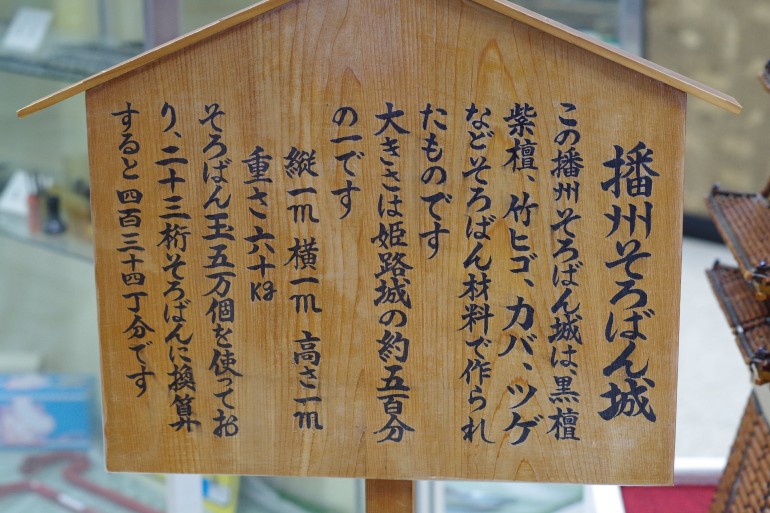 播州そろばん城
この播州そろばん城は、黒檀
紫檀、竹ヒゴ、カバ、ツゲ
などそろばん材料で作られ
たものです
大きさは姫路城の約五百分
の一です
縦一m 横一m 高さ一m
重さ六十kg
そろばん玉五万個を使ってお
り、二十三桁そろばんに換算
すると四百三十四丁分です